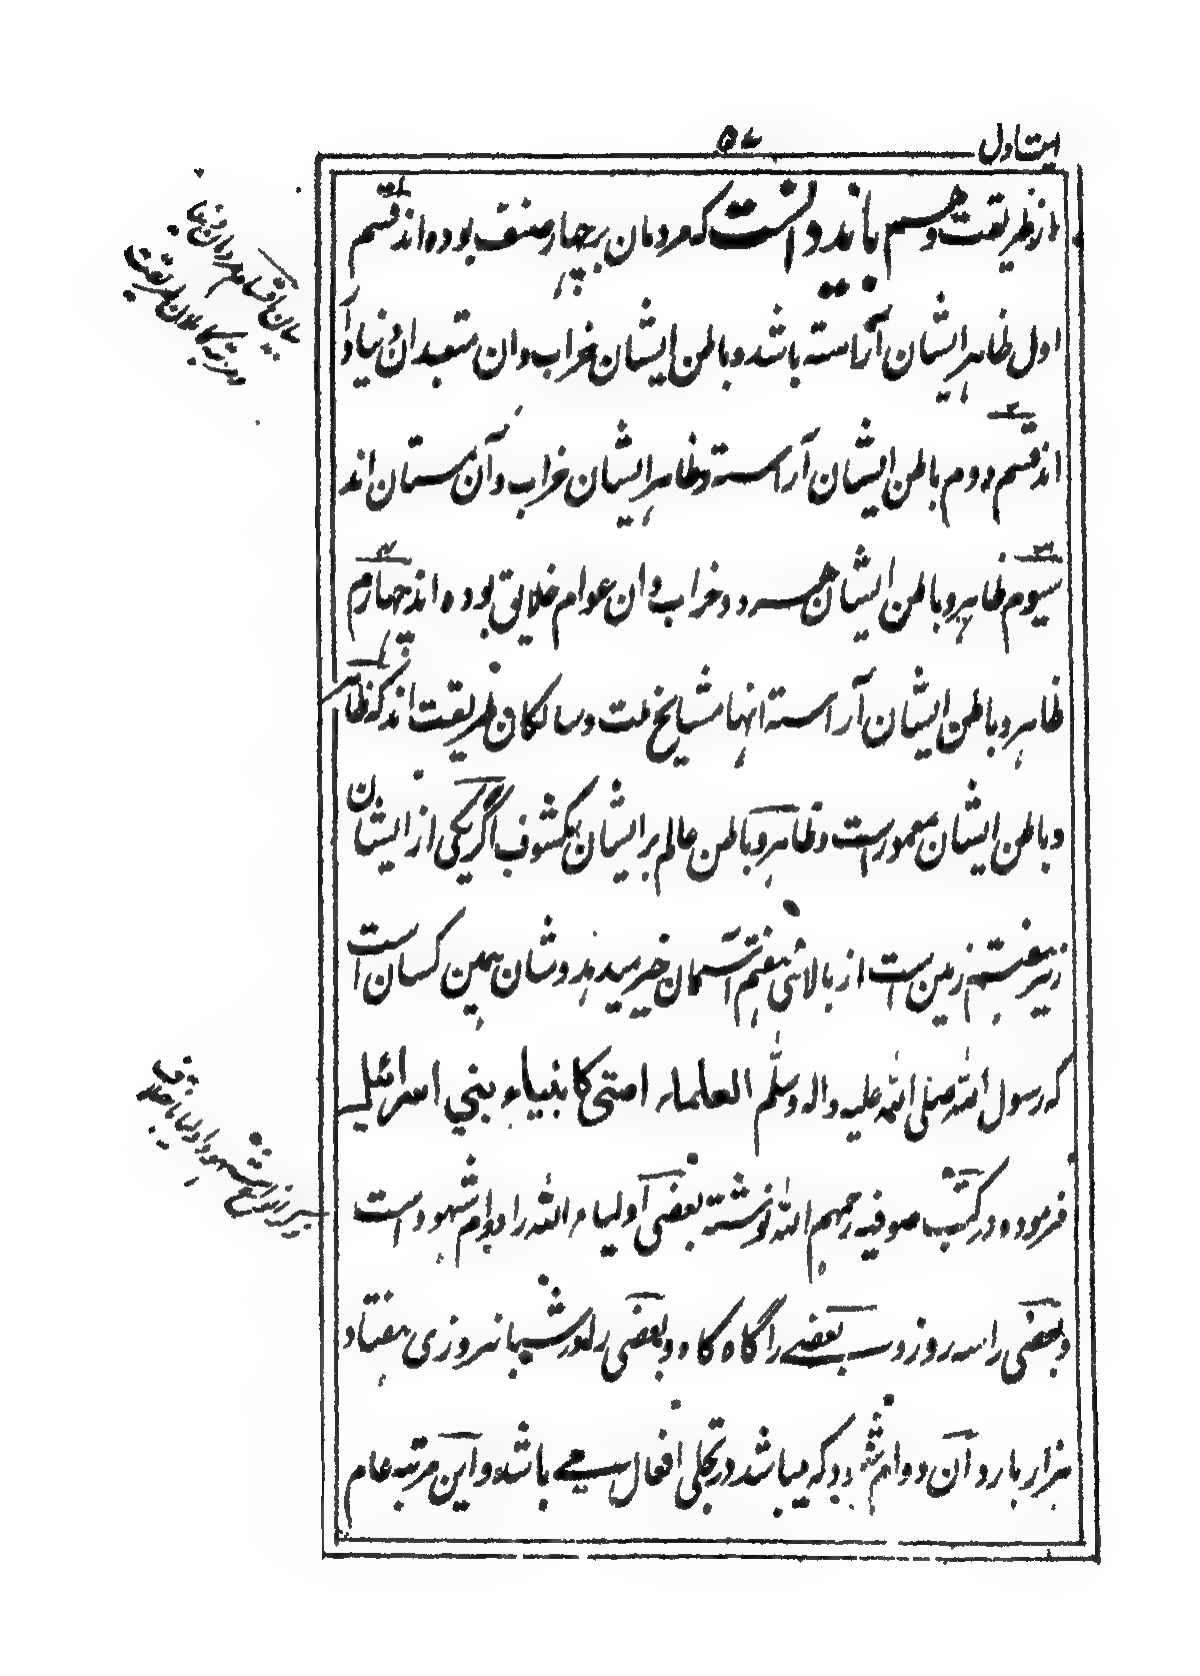 ۵۷
از طریقت و هم باید دانست که مردمان بر چهار صنف بوده اند قسم
اول ظاهر ایشان آراسته باشد و باطن ایشان خراب و آن متعبدان
اند قسم دوم باطن ایشان آراسته و ظاهر ایشان خراب و آن مستان اند
سیوم ظاهر و باطن ایشان هر دو خراب و آن عوام خلایق بوده اند چهارم
ظاهر و باطن ایشان آراسته انها مشایخ ملت و سالکان طریقت اند که ظاهر
و باطن ایشان معمورست و ظاهر و باطن عالم بر ایشان مکشوف اگر یکی از ایشان
زیر هفتم زمین است از بالائی هفتم آسمان خبر میدهد و شان همین کسان است
که رسول الله صلی الله علیه واله وسلم العلماء امتی کا نبیاء بنی اسرائیل
فرموده در کتب صوفیه رحمهم الله نوشته بعضی اولیاء الله را دوام شهود است
و بعضی را سه روز و بعضی را گاه گاه و بعضی را در شبانروزی هفتاد
هزار بار و آن دوام شهود که میباشد در تجلی افعال می باشد و این مرتبه عام
بیان اقسام مردمان
مرتبه کاملان طریقت